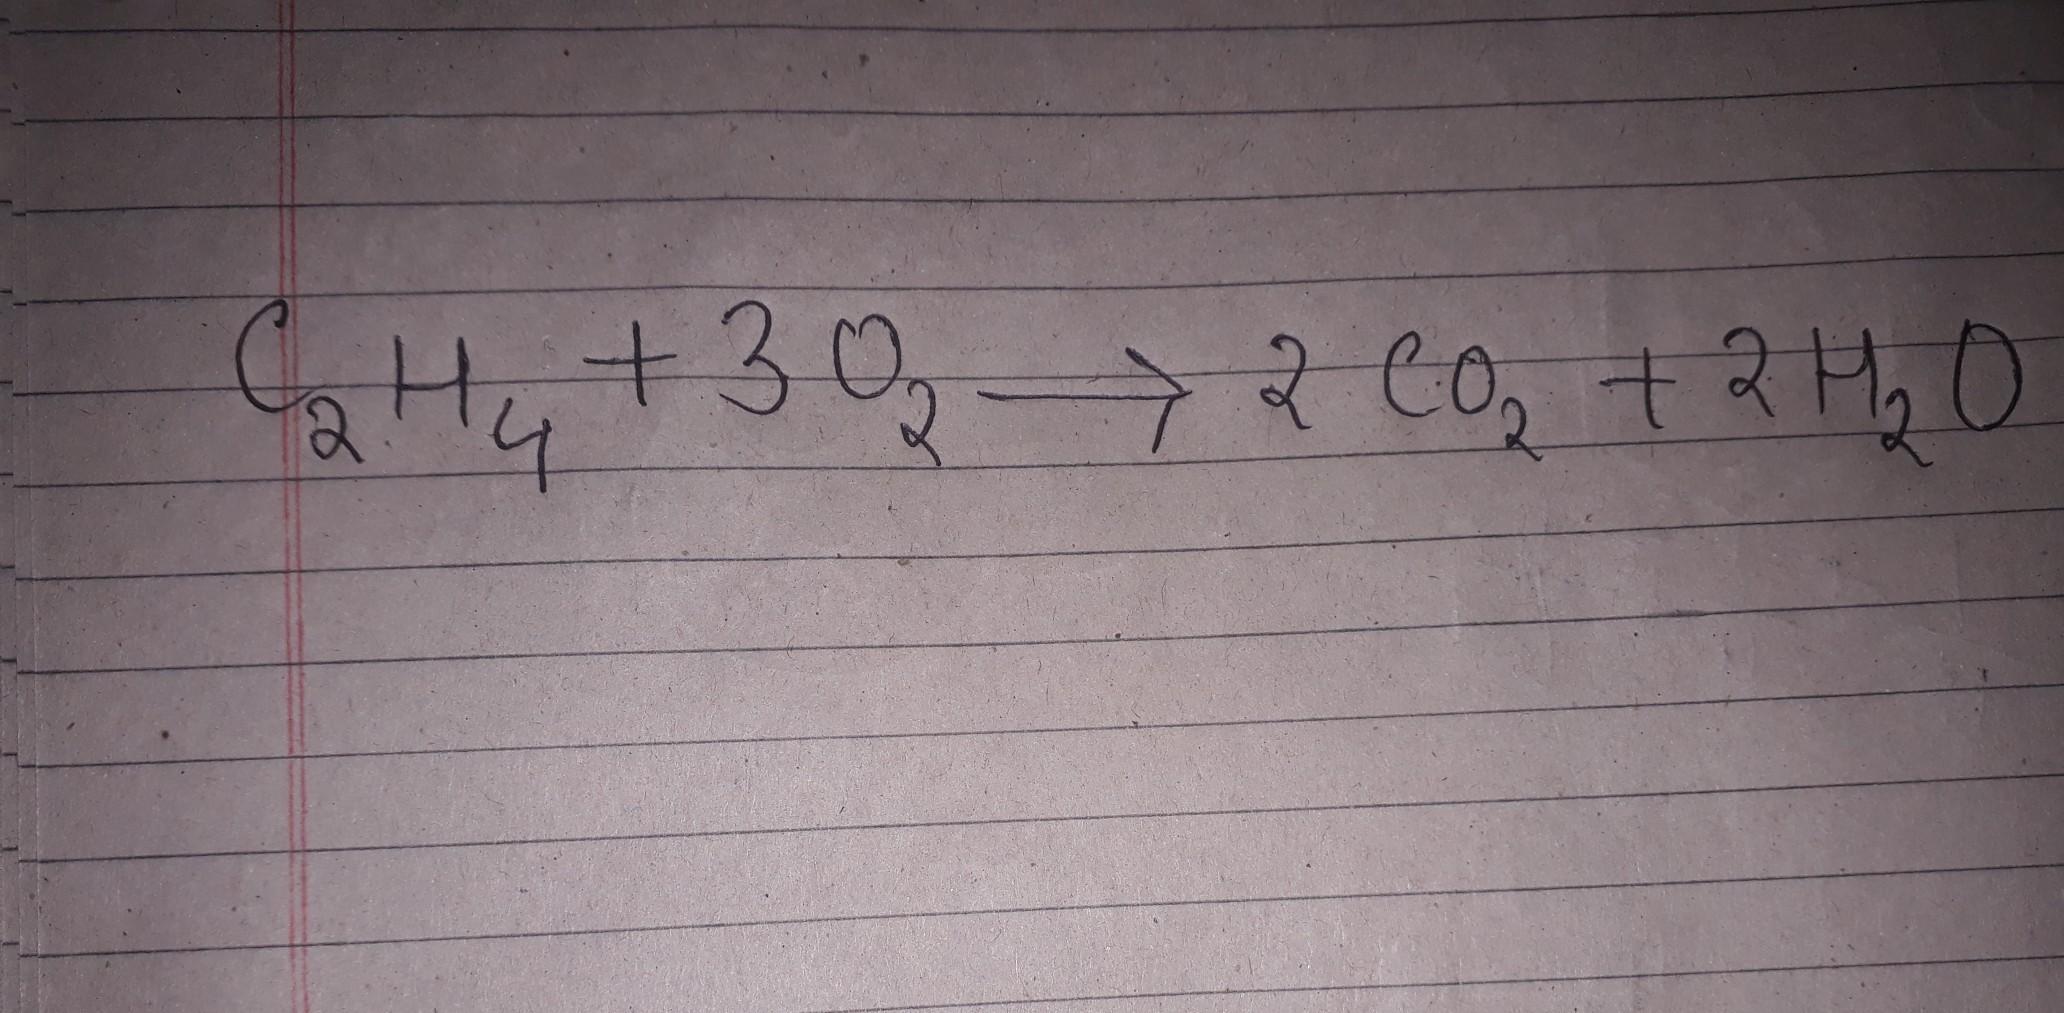 C₂H₄ + 3O₂ → 2CO₂ + 2H₂O